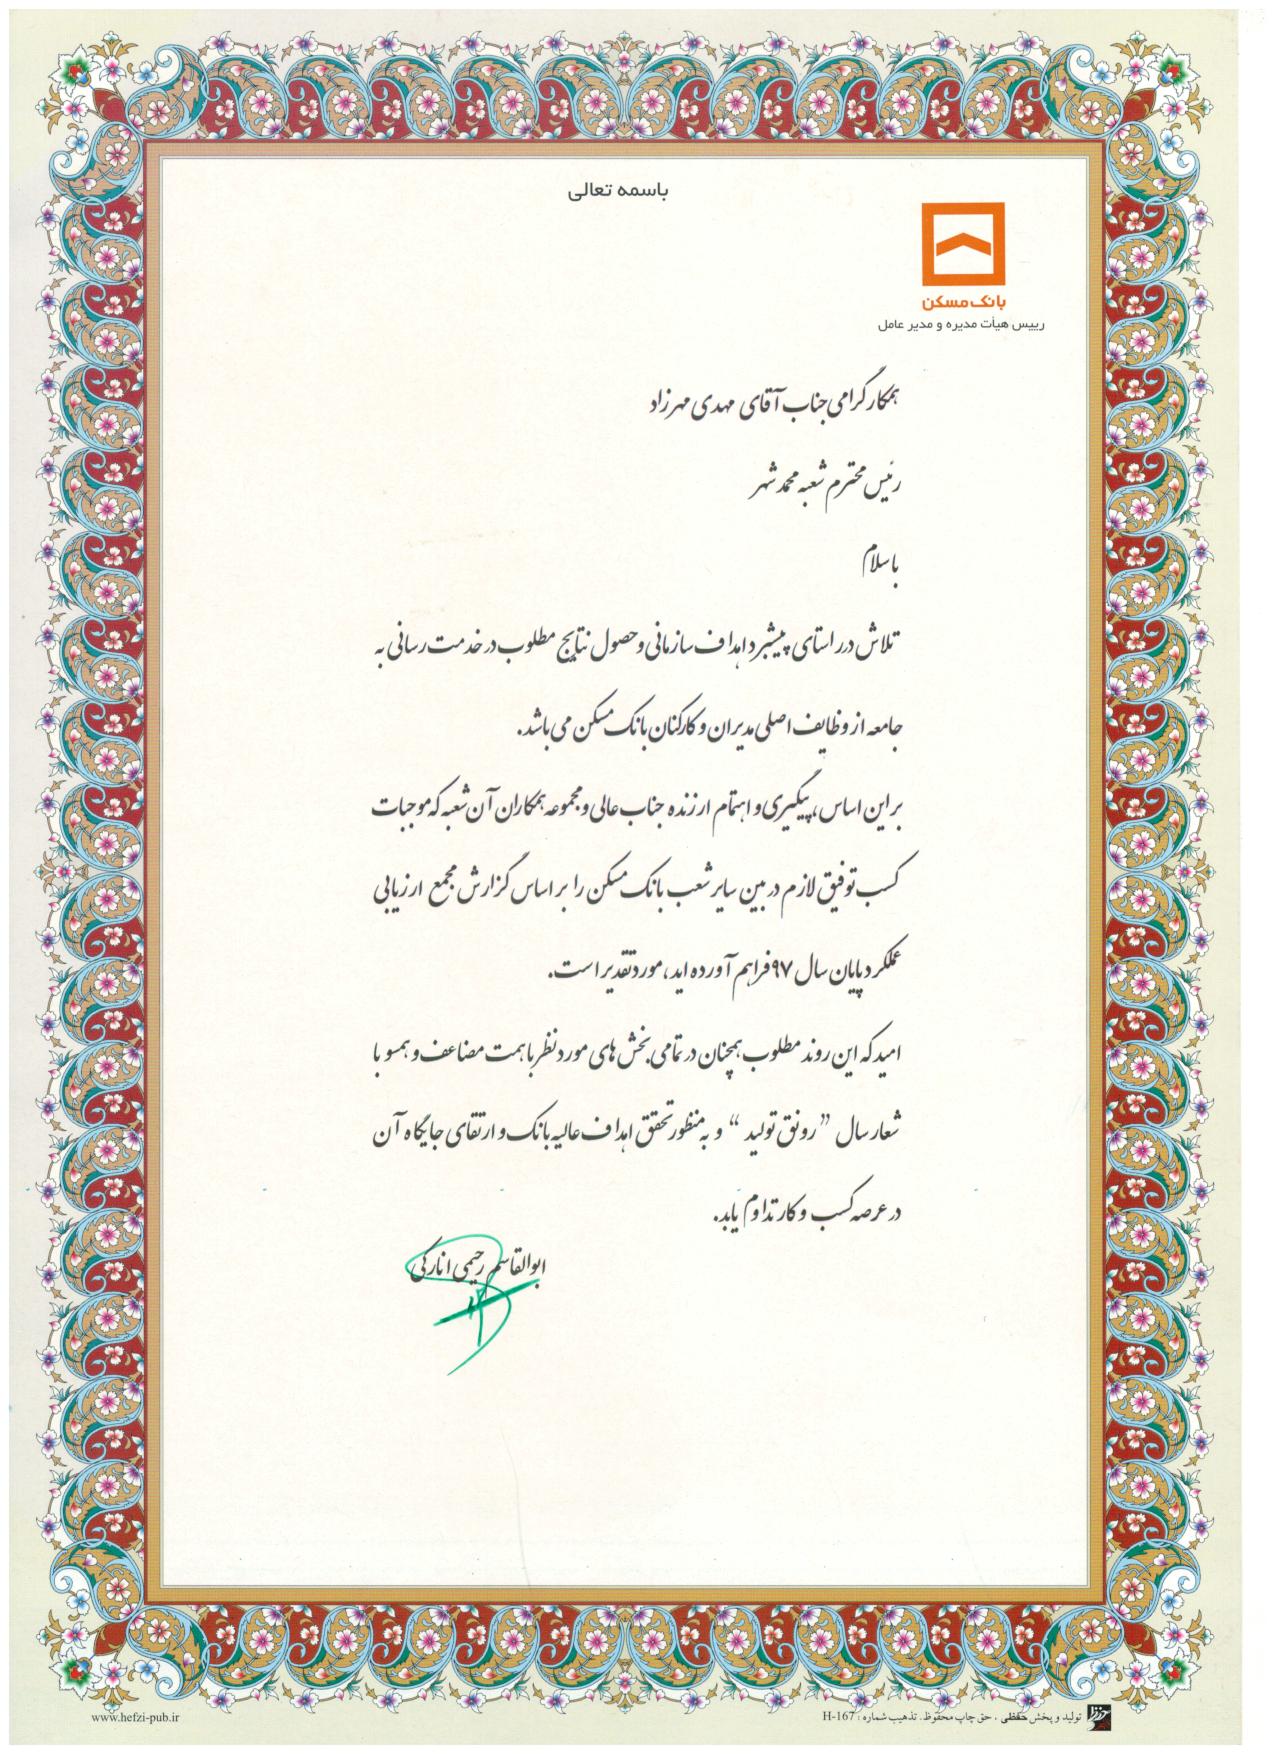 باسمه تعالی
بانک مسکن
رییس هیأت مدیره و مدیر عامل
همکار گرامی جناب آقای مهدی مهرزاد
رئیس محترم شعبه محمد شهر
با سلام
تلاش در راستای پیشبرد اهداف سازمانی و حصول نتایج مطلوب در خدمت رسانی به
جامعه از وظایف اصلی مدیران و کارکنان بانک مسکن می باشد.
بر این اساس، پیگیری و اهتمام ارزنده جناب عالی و مجموعه همکاران آن شعبه که موجبات
کسب توفیق لازم در بین سایر شعب بانک مسکن را بر اساس گزارش مجمع ارزیابی
عملکرد پایان سال ۹۷ فراهم آورده اید، مورد تقدیر است.
امید که این روند مطلوب همچنان در تمامی بخش های مورد نظر با همت مضاعف و همسو با
شعار سال ”رونق تولید“ و به منظور تحقق اهداف عالیه بانک و ارتقای جایگاه آن
در عرصه کسب و کار تداوم یابد.
ابوالقاسم رحیمی انارکی
تولید و پخش حفظی . حق چاپ محفوظ. تذهیب شماره : H-167
www.hefzi-pub.ir